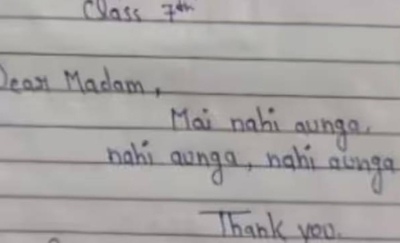 Class 7th
Dear Madam,
Mai nahi aunga.
nahi aunga, nahi aunga
Thank you.